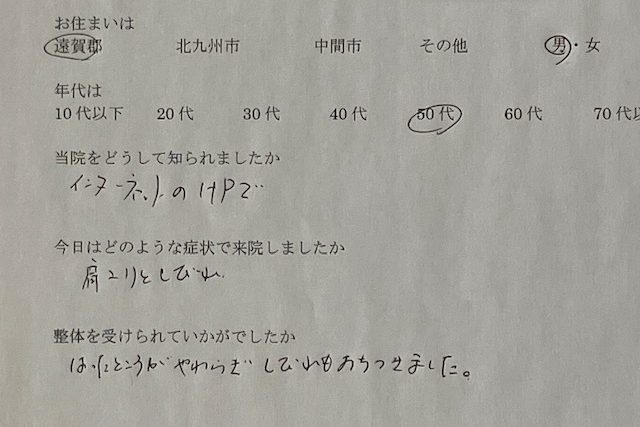 お住まいは
遠賀郡 北九州市 中間市 その他 男・女
年代は
10代以下 20代 30代 40代 50代 60代 70代以
当院をどうして知られましたか
インターネットのHPで
今日はどのような症状で来院しましたか
肩コリとしびれ
整体を受けられていかがでしたか
はったところがやわらぎしびれもおちつきました。